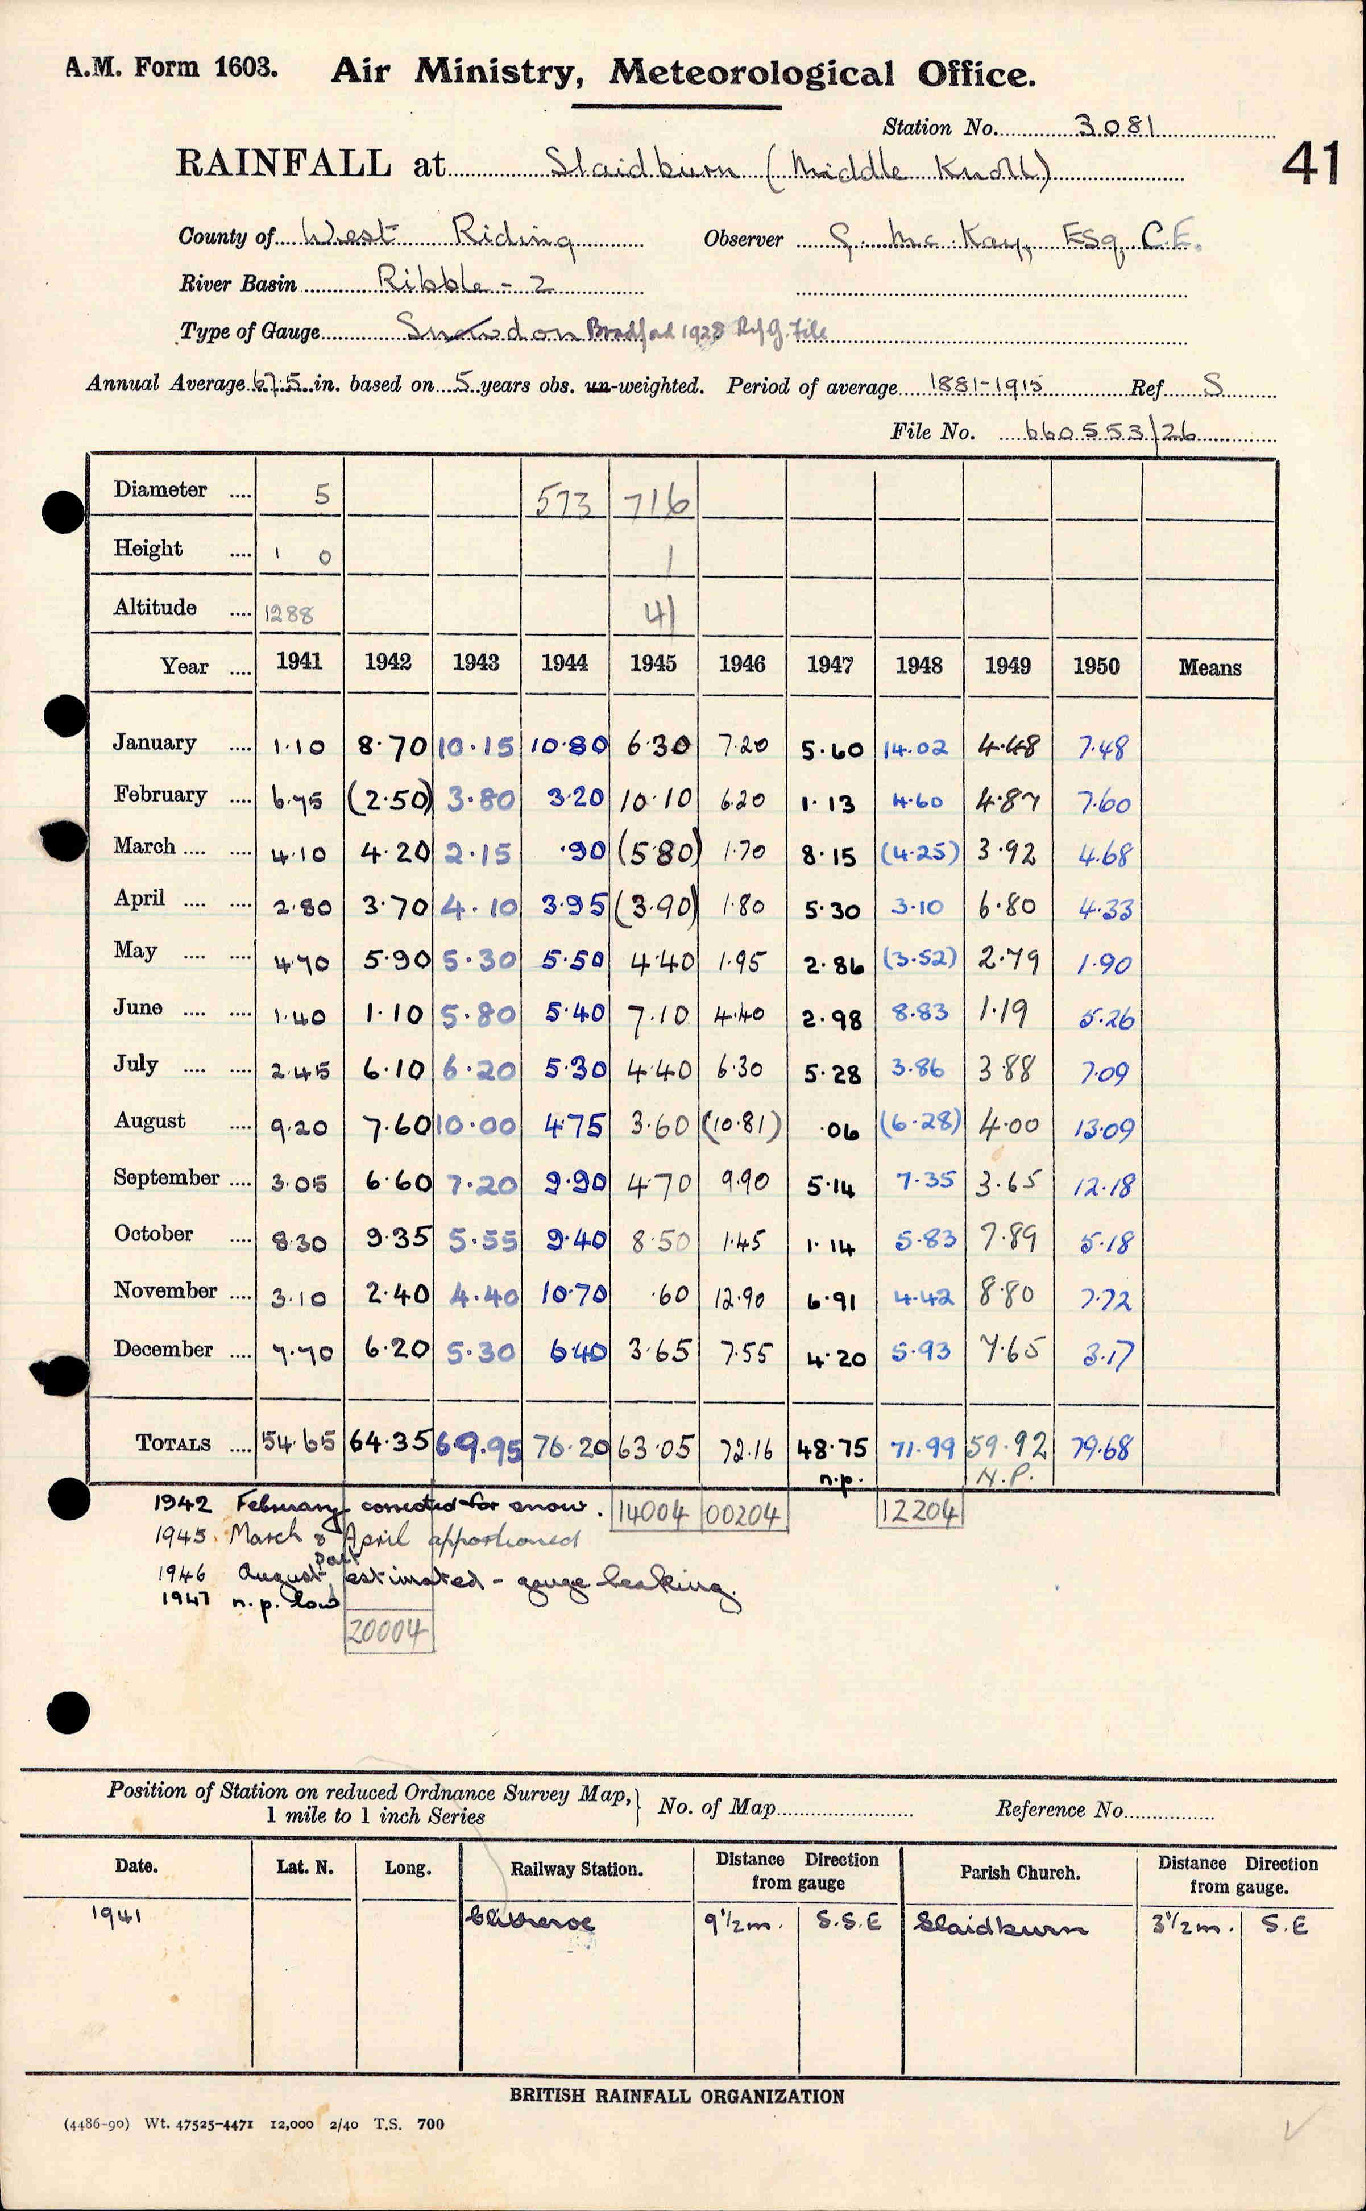 A.M. Form 1603. Air Ministry, Meteorological Office.
Station No. 3081
41
RAINFALL at Slaidburn (Middle Knoll)
County of West Riding Observer G. Mc. Kay, Esq, C.E.
River Basin Ribble - 2
Type of Gauge Snowdon Bradford 1928 Rfg. File
Annual Average 67.5 in. based on 5 years obs. un-weighted. Period of average 1881-1915 Ref S
File No. 660553/26
Diameter .... 5 573 716
Height .... 1 0 1
Altitude .... 1288 41
Year .... 1941 1942 1943 1944 1945 1946 1947 1948 1949 1950 Means
January .... 1.10 8.70 10.15 10.80 6.30 7.20 5.60 14.02 4.48 7.48
February .... 6.75 (2.50) 3.80 3.20 10.10 6.20 1.13 4.60 4.87 7.60
March .... .... 4.10 4.20 2.15 .90 (5.80) 1.70 8.15 (4.25) 3.92 4.68
April .... .... 2.80 3.70 4.10 3.95 (3.90) 1.80 5.30 3.10 6.80 4.33
May .... .... 4.70 5.90 5.30 5.50 4.40 1.95 2.86 (3.52) 2.79 1.90
June .... .... 1.40 1.10 5.80 5.40 7.10 4.40 2.98 8.83 1.19 5.26
July .... .... 2.45 6.10 6.20 5.30 4.40 6.30 5.28 3.86 3.88 7.09
August .... 9.20 7.60 10.00 4.75 3.60 (10.81) .06 (6.28) 4.00 13.09
September .... 3.05 6.60 7.20 9.90 4.70 9.90 5.14 7.35 3.65 12.18
October .... 8.30 9.35 5.55 9.40 8.50 1.45 1.14 5.83 7.89 5.18
November .... 3.10 2.40 4.40 10.70 .60 12.90 6.91 4.42 8.80 7.72
December .... 7.70 6.20 5.30 6.40 3.65 7.55 4.20 5.93 7.65 3.17
TOTALS .... 54.65 64.35 69.95 76.20 63.05 72.16 48.75 71.99 59.92 79.68
n.p. N.P.
1942 February corrected for snow. 14004 00204 12204
1945. March & April apportioned
1946 August part estimated - gauge leaking.
1947 n.p. low
20004
Position of Station on reduced Ordnance Survey Map, } No. of Map Reference No.
1 mile to 1 inch Series
Date. Lat. N. Long. Railway Station. Distance from gauge Direction Parish Church. Distance Direction from gauge.
1941 Clitheroe 9 1/2 m. S.S.E Slaidburn 3 1/2 m. S.E
BRITISH RAINFALL ORGANIZATION
(4486-90) Wt. 47525-4471 12,000 2/40 T.S. 700